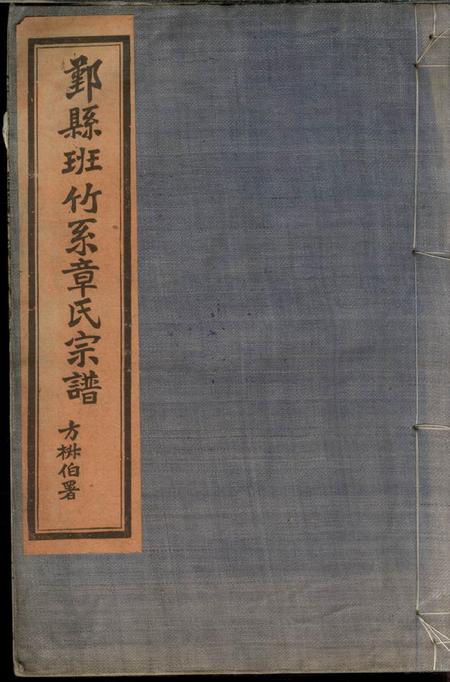 鄞縣班竹系章氏宗譜
方椒伯署